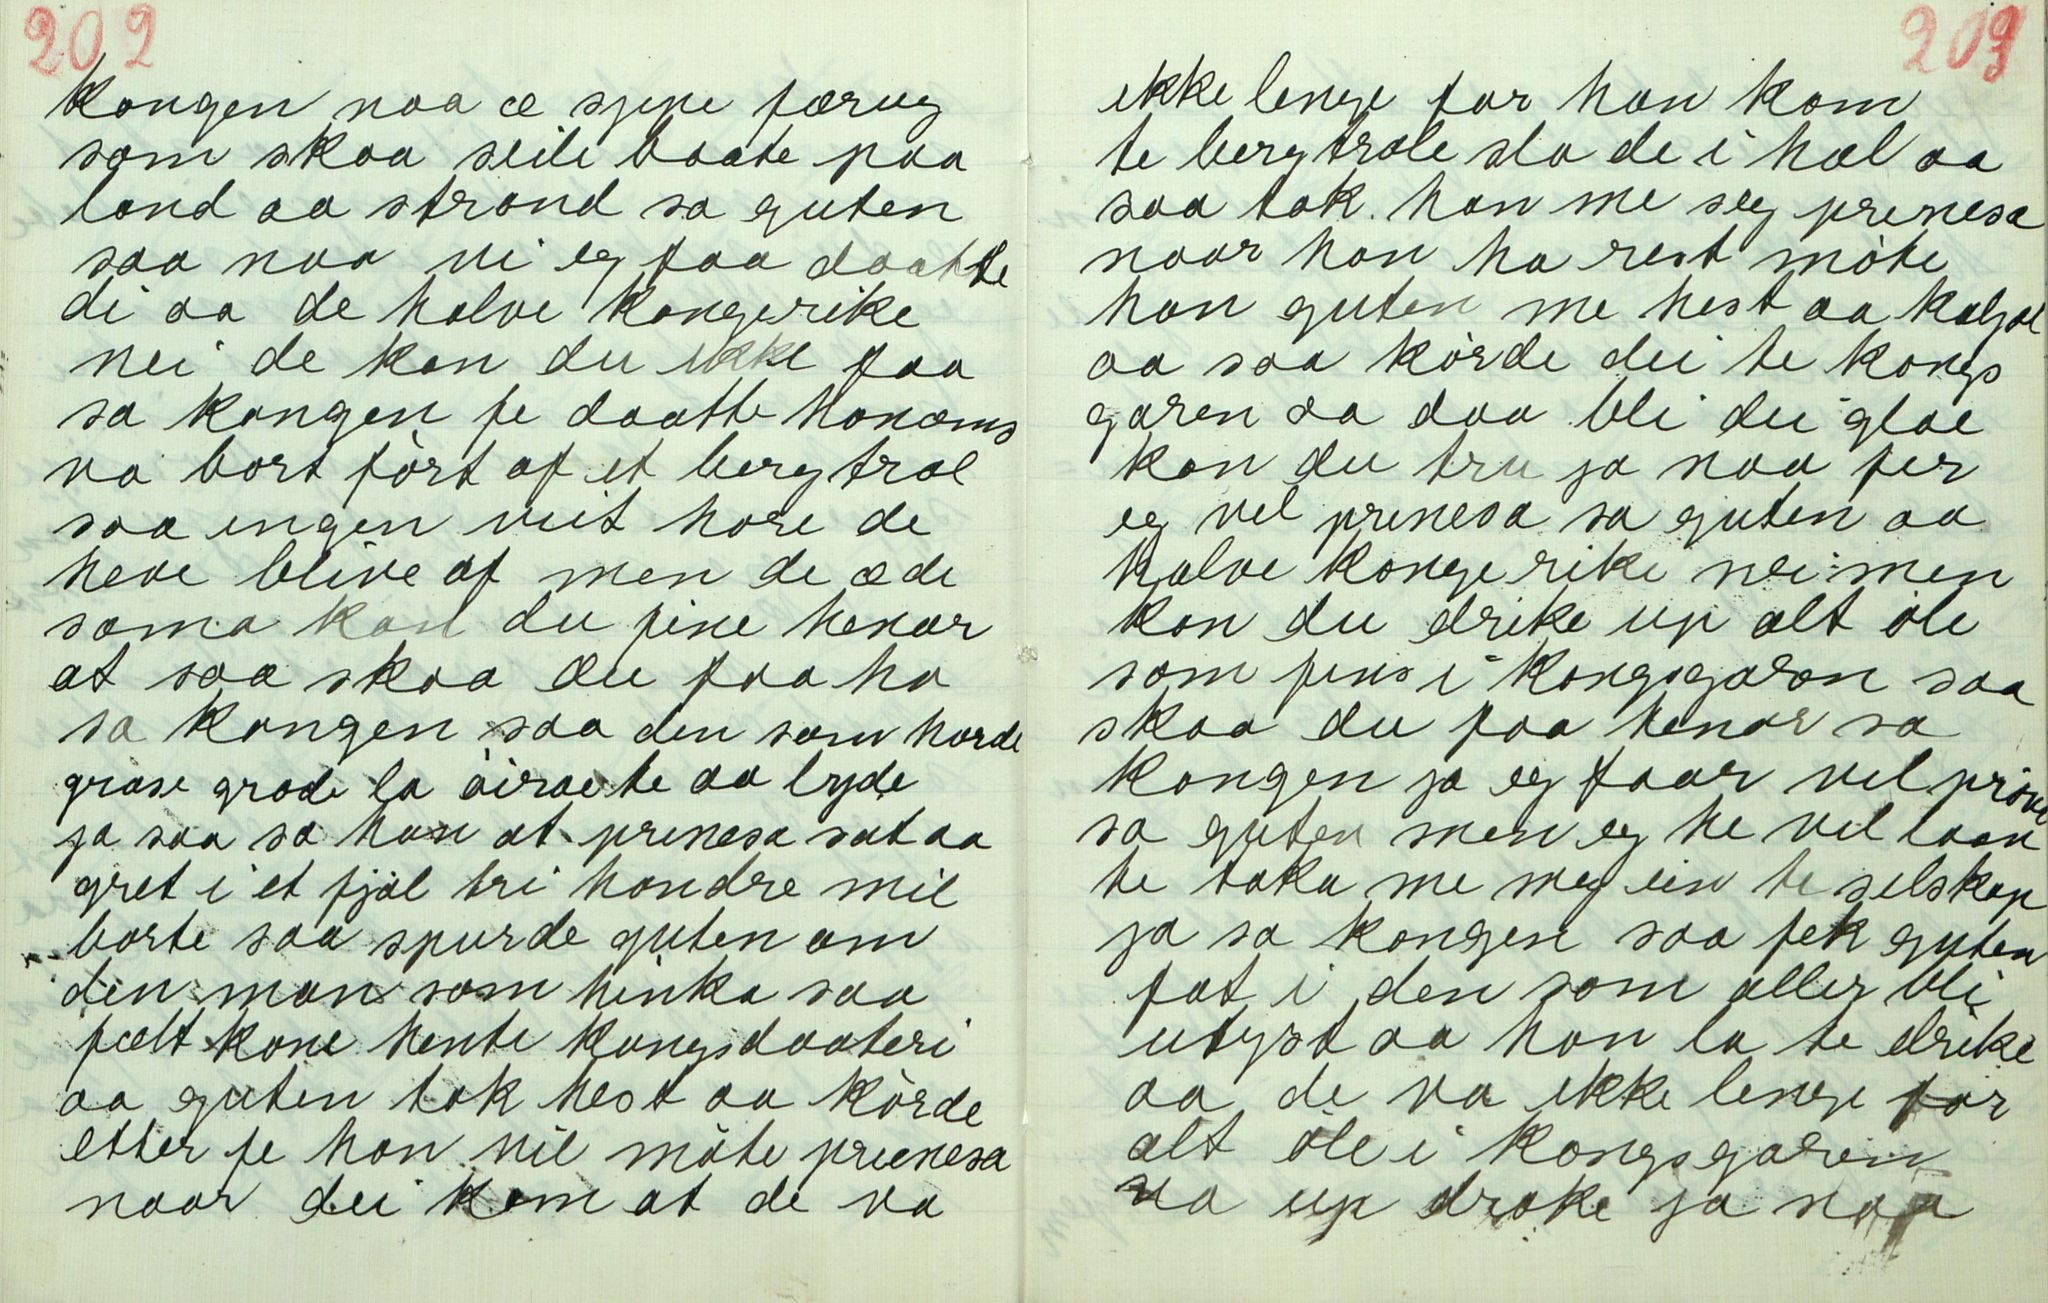 202
kongen naa æ sjene færug
som skaa seile baate paa
land aa strand sa guten
saa naa vi eg faa daatte
di aa de halve kongerike
nei de kan du ikke faa
sa kongen fe daatte honæms
va bort fört af et berg trol
saa ingen veit hore de
heve blive af men de æ de
sama kan du fine henar
at saa skaa du faa ha
sa kongen saa den som horde
grase grode la öirae te aa lyde
ja saa sa han at prinesa sat aa
gret i et fjöl tri hondre mil
borte saa spurde guten om
den man som hinka saa
fælt kone hente kongsdaateri
aa guten tok hest aa körde
etter fe han vil möte prienesa
naar dei kom at de va
209
ikke lenge for han kom
te berg trole slo de i hæl aa
saa tok han me seg prinesa
naar han ha rest möte
han guten me hest aa kaljol
aa saa körde dei te kongs
garen aa daa bli dei glae
kan du tru ja naa fer
eg vel prinesa sa guten aa
halve konge rike nei men
kan du drike up alt öle
som fins i kongsgaren saa
skaa du faa henar sa
kongen ja eg faar vel pröve
sa guten men eg he vel laav
te taka me meg ein te selskap
ja sa kongen saa fek guten
fat i den som aller bli
utyst aa han la te drike
aa de va ikke lenge for
alt öle i kongsgaren
va up drake ja naa